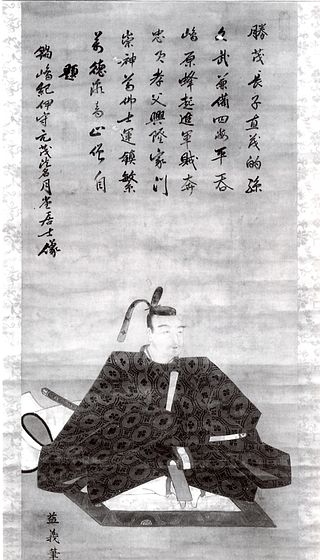 勝茂長子直茂的孫
文武兼備四海平呑
嶋原蜂起進軍賊奔
忠君孝父興隆家門
崇神尊佛士運鎮繁
万德 高山 自
題
鍋嶋紀伊守元茂 月堂居士像
益義筆